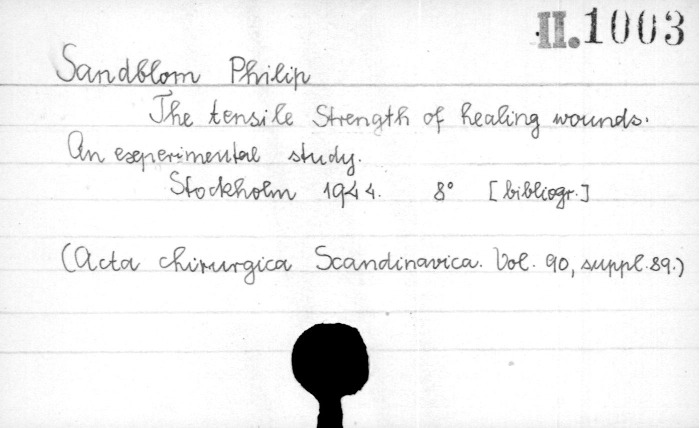 II.1003
Sandblom Philip
The tensile Strength of healing wounds.
An experimental study.
Stockholm 1944. 8° [bibliogr.]
(Acta chirurgica Scandinavica. Vol. 90, suppl. 89.)